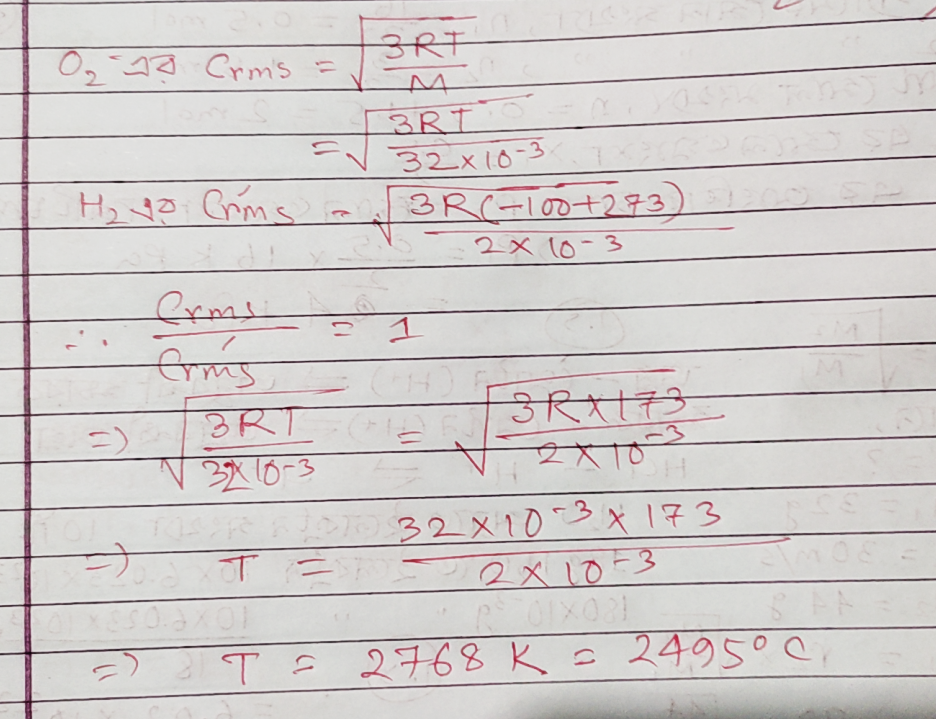 O₂-এর Crms = √(3RT/M)
= √(3RT/(32×10⁻³))
H₂ এর C'rms = √(3R(-100+273)/(2×10⁻³))
∴ Crms/C'rms = 1
=> √(3RT/(32×10⁻³)) = √(3R×173/(2×10⁻³))
=> T = (32×10⁻³×173)/(2×10⁻³)
=> T = 2768 K = 2495°C